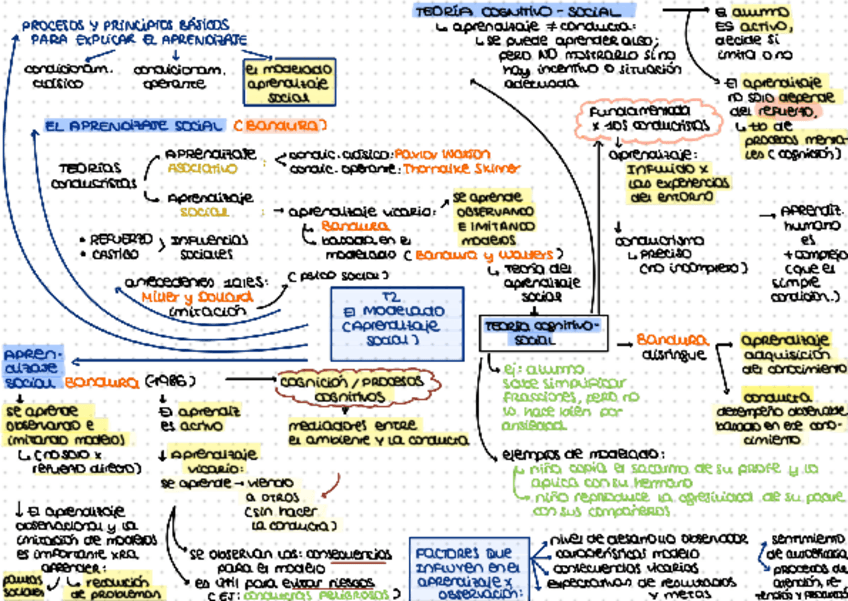 PROCESOS Y PRINCIPIOS BÁSICOS
PARA EXPLICAR EL APRENDIZAJE
condicionam.
clásico
condicionam.
operante
el modelado
aprendizaje
social
EL APRENDIZAJE SOCIAL (BANDURA)
TEORÍAS
conductistas
APRENDIZAJE
ASOCIATIVO
condic. clásico: Pavlov Watson
condic. operante: Thorndike Skinner
Aprendizaje
social
aprendizaje vicario:
Bandura
basada en el
modelado (Bandura y Walters)
se aprende
OBSERVANDO
E IMITANDO
modelos
Teoría del
aprendizaje
social
• REFUERZO
• CASTIGO
INFLUENCIAS
sociales
antecedentes
Miller y Dollard
imitación
(psico social)
T2
El MODELADO
(Aprendizaje
social)
TEORÍA COGNITIVO - SOCIAL
aprendizaje ≠ conducta:
se puede aprender algo,
pero NO mostrarlo si no
hay incentivo o situación
adecuada
El alumno
ES ACTIVO,
decide si
imita o no
El aprendizaje
no solo depende
del REFUERZO,
tb de
procesos menta-
les (cognición)
Fundamentada
x los conductistas
aprendizaje:
INFLUIDO x
las experiencias
del ENTORNO
conductismo
PRECISO
(no incompleto)
APRENDIZ.
humano
es
+ complejo
(que el
simple
condición.)
TEORÍA COGNITIVO-
SOCIAL
BANDURA
distingue
aprendizaje
adquisición
del conocimiento
conducta
desempeño observable
basado en ese cono-
cimiento
ej: alumno
sabe simplificar
fracciones, pero no
lo hace bien por
ansiedad
ejemplos de modelado:
niño copia el sacarmo de su profe y lo
aplica con su hermano
niño reproduce la agresividad de su padre
con sus compañeros
APREN-
DIZAJE
SOCIAL BANDURA (1986)
se aprende
observando e
imitando modelos
(no solo x
refuerzo directo)
El aprendiz
es activo
cognición / procesos
cognitivos
mediadores entre
el ambiente y la conducta
Aprendizaje
vicario:
se aprende
viendo
a OTROS
(sin hacer
la conducta)
El aprendizaje
observacional y la
imitación de modelos
es importante xra
aprender:
pautas
sociales
resolución
de problemas
se observan las: consecuencias
para el modelo
es útil para evitar riesgos
(EJ: conductas peligrosas)
FACTORES QUE
INFLUYEN EN EL
aprendizaje x
observación:
nivel de desarrollo observador
características modelo
consecuencias vicarias
expectativas de resultados
y metas
sentimiento
de autoeficacia
procesos de
atención, re-